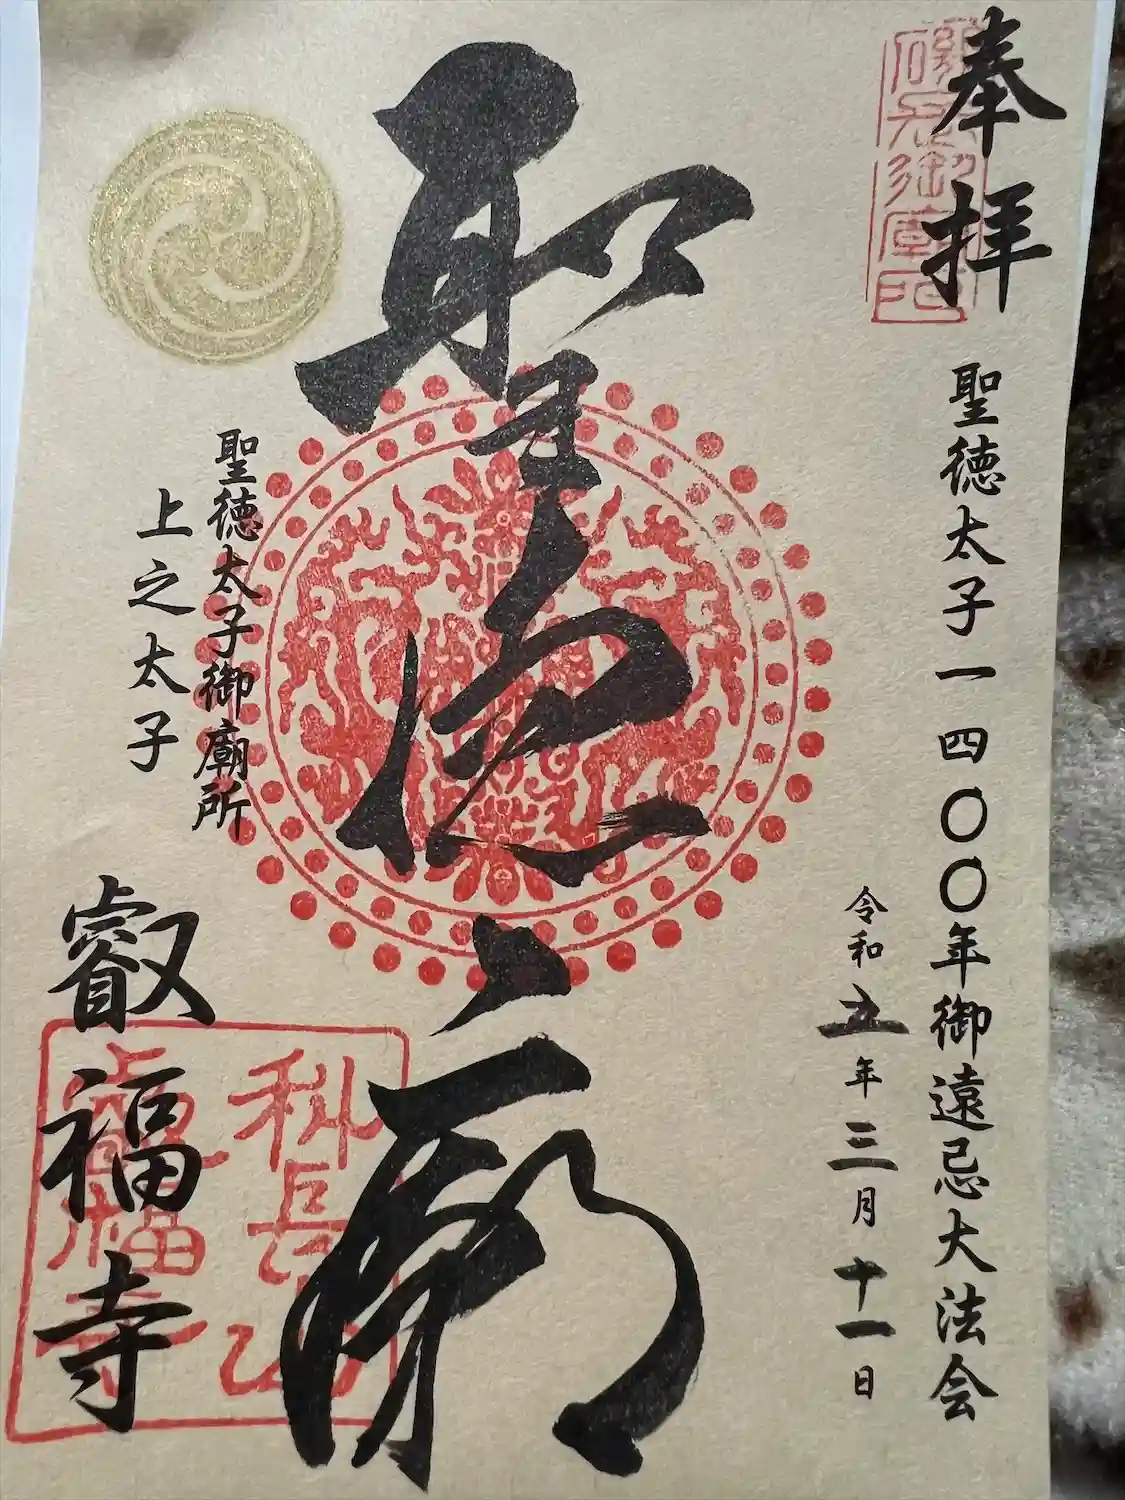 奉拝
聖徳太子一四〇〇年御遠忌大法会
令和五年三月十一日
聖徳廟
聖徳太子御廟所
上之太子
叡福寺